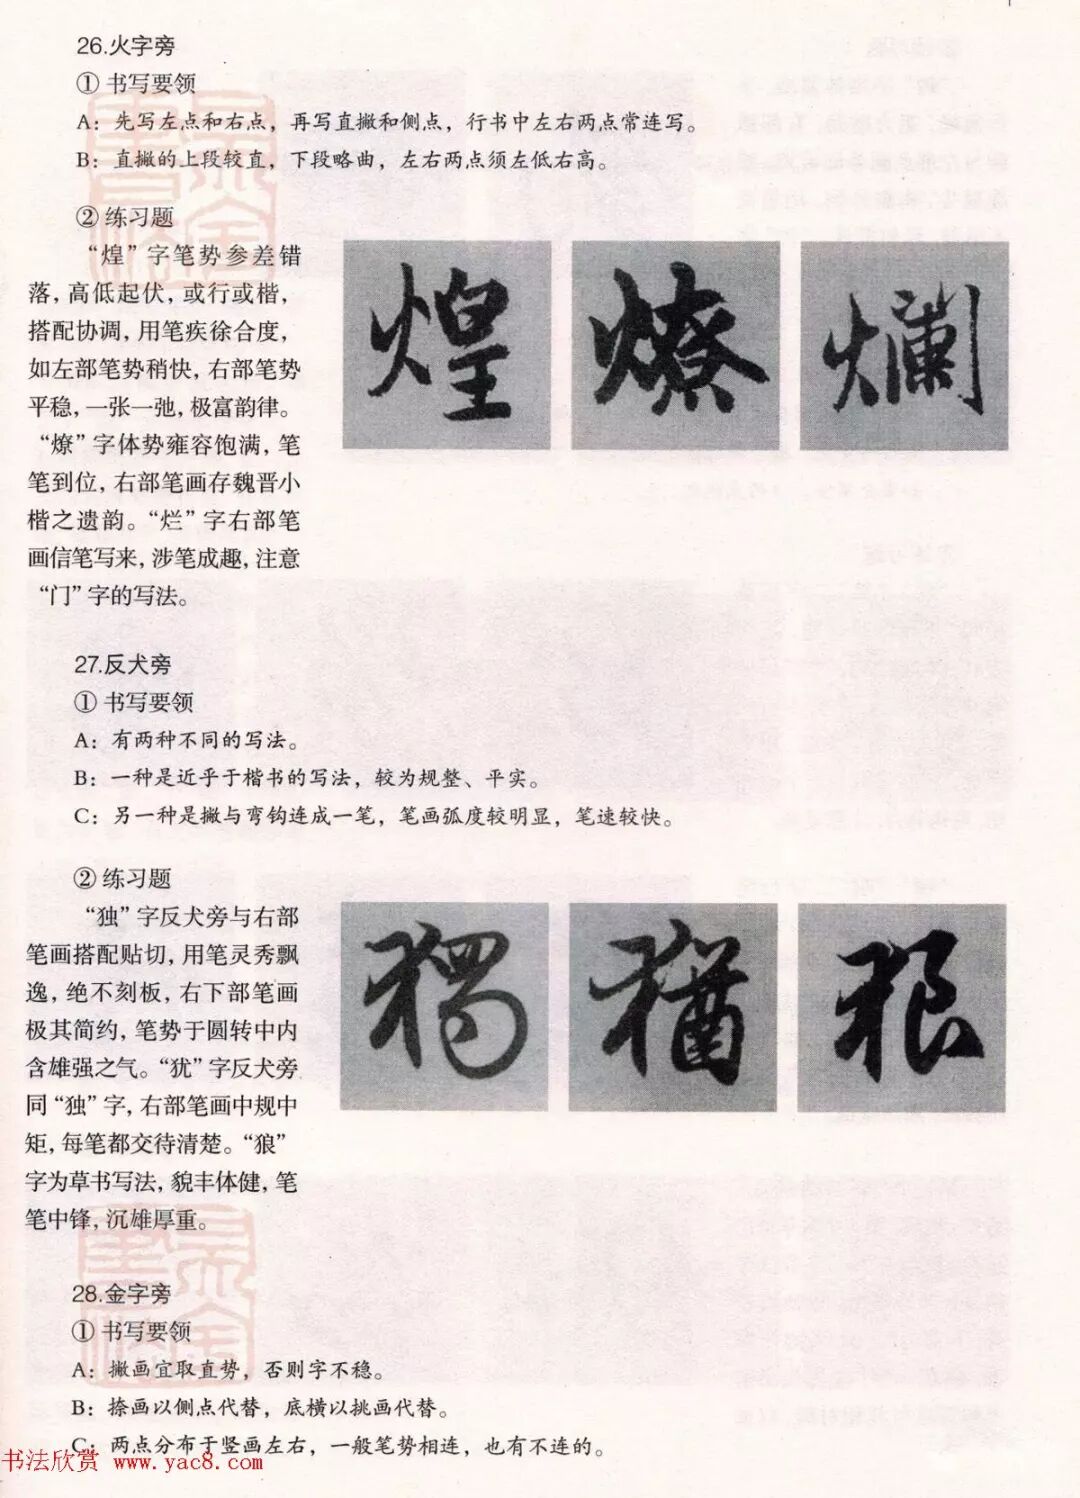 26.火字旁
① 书写要领
A：先写左点和右点，再写直撇和侧点，行书中左右两点常连写。
B：直撇的上段较直，下段略曲，左右两点须左低右高。
② 练习题
“煌”字笔势参差错
落，高低起伏，或行或楷，
搭配协调，用笔疾徐合度，
如左部笔势稍快，右部笔势
平稳，一张一弛，极富韵律。
“燎”字体势雍容饱满，笔
笔到位，右部笔画存魏晋小
楷之遗韵。“烂”字右部笔
画信笔写来，涉笔成趣，注意
“门”字的写法。
煌 燎 爛
27.反犬旁
① 书写要领
A：有两种不同的写法。
B：一种是近乎于楷书的写法，较为规整、平实。
C：另一种是撇与弯钩连成一笔，笔画弧度较明显，笔速较快。
② 练习题
“独”字反犬旁与右部
笔画搭配贴切，用笔灵秀飘
逸，绝不刻板，右下部笔画
极其简约，笔势于圆转中内
含雄强之气。“犹”字反犬旁
同“独”字，右部笔画中规中
矩，每笔都交待清楚。“狼”
字为草书写法，貌丰体健，笔
笔中锋，沉雄厚重。
獨 猶 狼
28.金字旁
① 书写要领
A：撇画宜取直势，否则字不稳。
B：捺画以侧点代替，底横以挑画代替。
C：两点分布于竖画左右，一般笔势相连，也有不连的。
书法欣赏 www.yac8.com